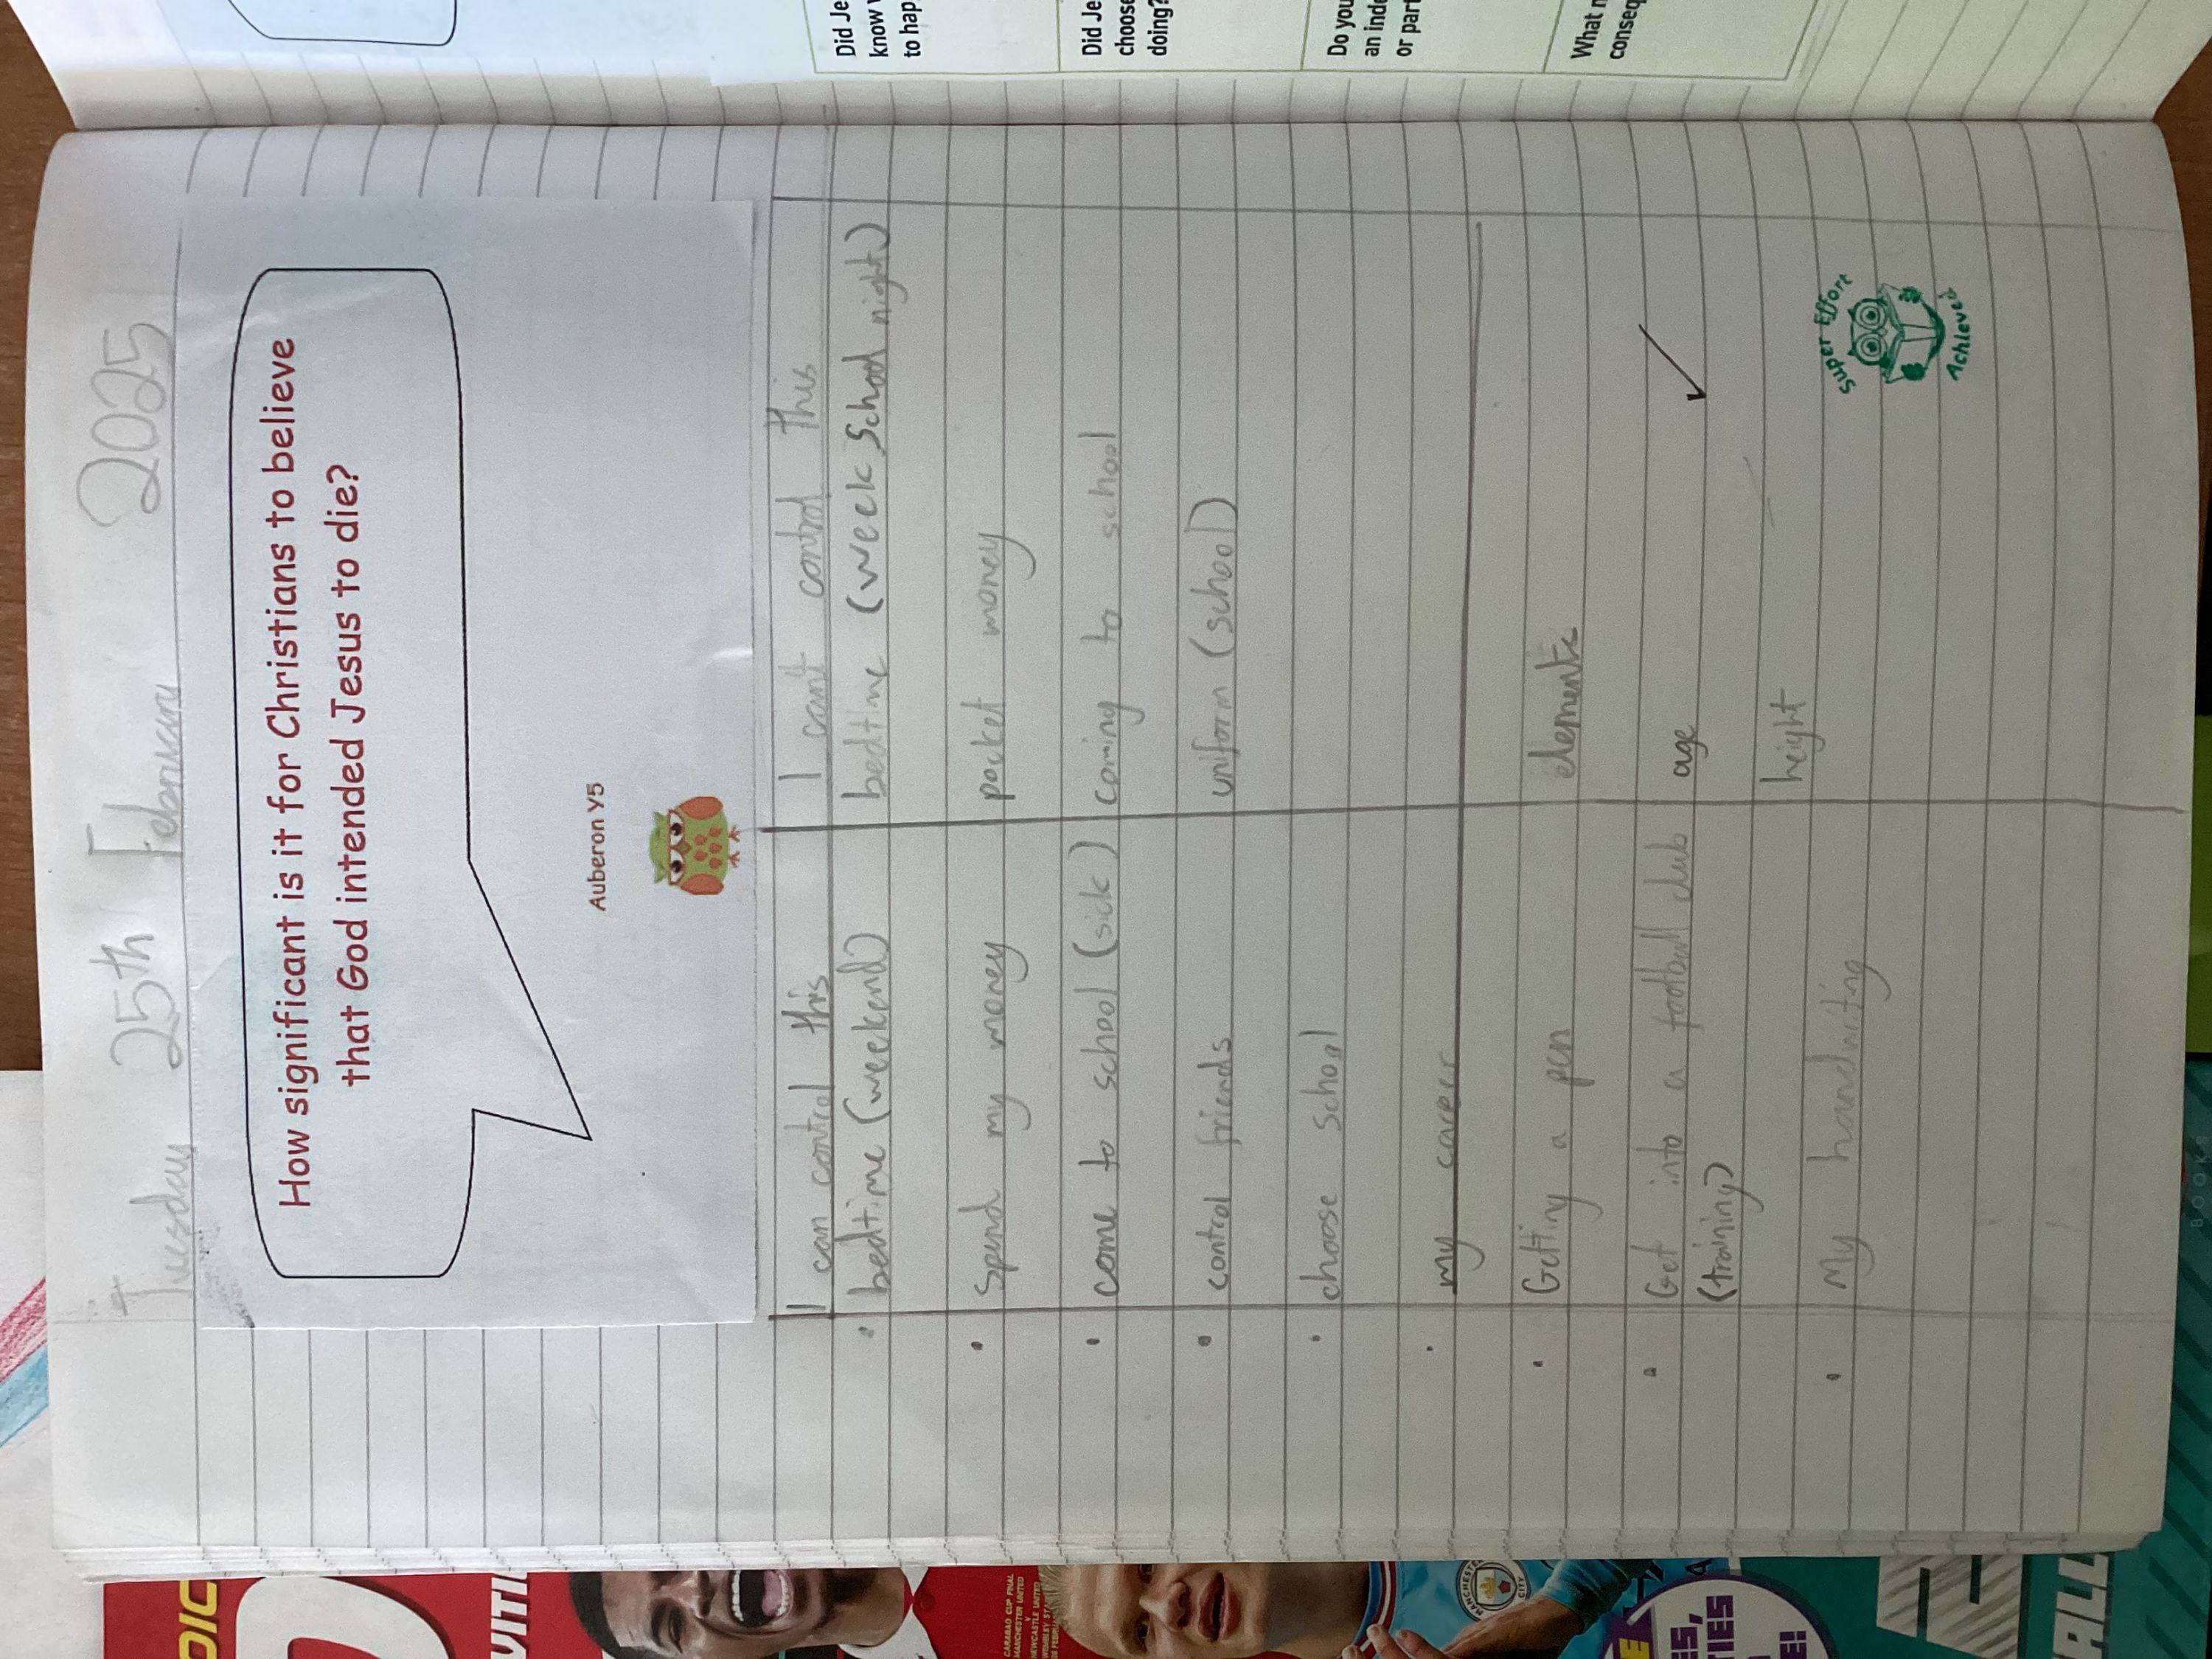 Tuesday 25th February 2025
How significant is it for Christians to believe
that God intended Jesus to die?
Auberon Y5
I can control this
I can't control this
• bedtime (weekend)
bedtime (week School night)
• Spend my money
pocket money
• come to school (sick)
coming to school
• control friends
uniform (school)
• choose school
• my career
• Getting a pen
elements
• Get into a football club
(training)
age
height
• My handwriting
Super Effort
Achieved
Did Je
know
to hap
Did Je
choose
doing?
Do you
an inde
or part
What
conseq
DIC
CARABAO CUP FINAL
MANCHESTER UNITED
V
NEWCASTLE UNITED
MANCHESTER
CITY
BOOKS
ALL